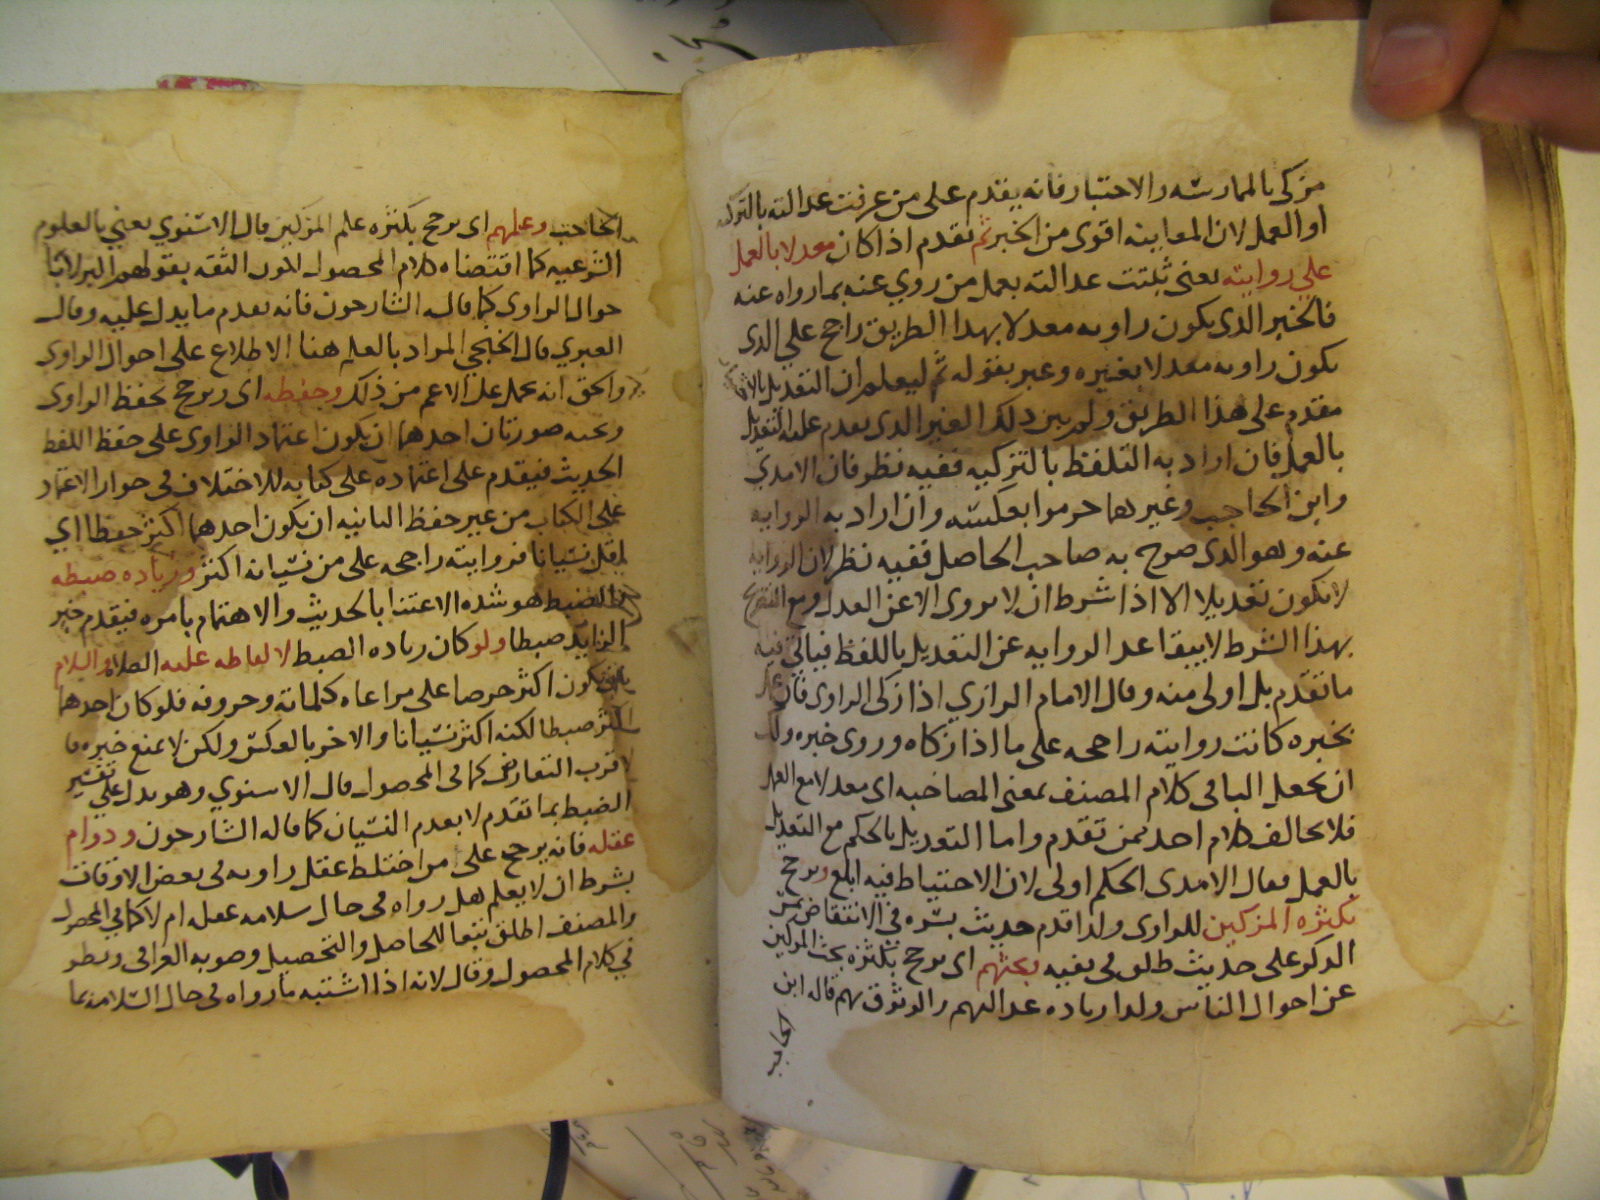 مزكى بالممارسه والاختبار فانه يقدم على من عرفت عدالته بالتزكيه
او العمل لان المعاينه اقوى من الخبر ثم يقدم اذا كان معدلا بالعمل
على روايته يعنى ثبتت عدالته بعمل من روي عنه بما رواه عنه
فالخبر الذى يكون راويه معدلا بهذا الطريق راجح علي الذى
يكون راويه معدلا بغيره وعبر بقوله ثم ليعلم ان التعديل
مقدم على هذا الطريق ولم يبين ذلك الغير الذى يقدم عليه التعديل
بالعمل فان اراد به التلفظ بالتزكيه ففيه نظر فان الامدي
وابن الحاجب وغيرهما جزموا بعكسه وان اراد به الروايه
عنه وهو الذى صرح به صاحب الحاصل ففيه نظر لان الروايه
لا تكون تعديلا الا اذا شرط ان لا يروى الا عن العدل ومع التصريح
بهذا الشرط لا يتقاعد الروايه عن التعديل باللفظ فياتي فيه
ما تقدم بل اولى منه وقال الامام الرازي اذا زكى الراوى فان عمل
بخبره كانت روايته راجحه على ما اذا زكاه وروى خبره ولك
ان تجعل البا فى كلام المصنف بمعنى المصاحبه اى معدلا مع العمل
فلا يخالف كلام احد ممن تقدم واما التعديل بالحكم مع التعديل
بالعمل فقال الامدى الحكم اولى لان الاحتياط فيه ابلغ ويرجح
بكثره المزكين للراوى ولذا قدم حديث بسره فى الانتقاض بمس
الذكر على حديث طلق فى نفيه وبحثهم اى يرجح بكثره بحث المزكين
عن احوال الناس ولذا زياده عدالتهم والوثوق بهم قاله ابن
الحاجب
الحاجب وعلمهم اى يرجح بكثره علم المزكين قال الاسنوي يعني بالعلوم
الشرعيه كما اقتضاه كلام المحصول لكون الثقه بقولهم اكبر لا
حوال الراوى كما قاله الشارحون فانه تقدم ما يدل عليه وقال
العبري قال الخنجي المراد بالعلم هنا الاطلاع على احوال الراوى
والحق انه يحمل على الاعم من ذلك وحفظه اى ويرجح بحفظ الراوى
وتحته صورتان احدهما ان يكون اعتماد الراوى على حفظ اللفظ
الحديث فيقدم على اعتماده على كتابه للاختلاف فى جواز الاعتماد
على الكتاب من غير حفظ الثانيه ان يكون احدهما اكثر حفظا اي
اقل نسيانا فروايته راجحه على من نسيانه اكثر وزياده ضبطه
الضبط هو شده الاعتنا بالحديث والاهتمام بامره فيقدم خبر
الزايد ضبطا ولو كان زياده الضبط لالفاظه عليه الصلاه والسلام
بان يكون اكثر حرصا على مراعاه كلماته وحروفه فلو كان احدهما
اكثر ضبطا لكنه اكثر نسيانا والاخر بالعكس ولكن لا يمنع خبره فا
لاقرب التعارض كما فى المحصول قال الاسنوي وهو يدل على تفسير
الضبط بما تقدم لا بعدم النسيان كما قاله الشارحون ودوام
عقله فانه يرجح على من اختلط عقل راويه فى بعض الاوقات
بشرط ان لا يعلم هل رواه فى حال سلامه عقله ام لا كما في المحصول
والمصنف اطلق تبعا للحاصل والتحصيل وصوبه العراقى ونظر
في كلام المحصول وقال لانه اذا اشتبه ما رواه فى حال السلامه بما